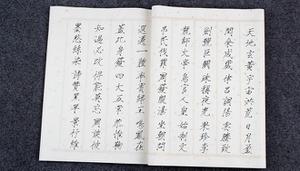 天地玄黃宇宙洪荒日月盈
閏餘成歲律呂調陽雲騰致
劍號巨闕珠稱夜光果珍李
龍師火帝鳥官人皇始制文
吊民伐罪周發殷湯坐朝問
遐邇一體率賓歸王鳴鳳在
蓋此身髮四大五常恭惟鞠
知過必改得能莫忘罔談彼
墨悲絲染詩讚羔羊景行維